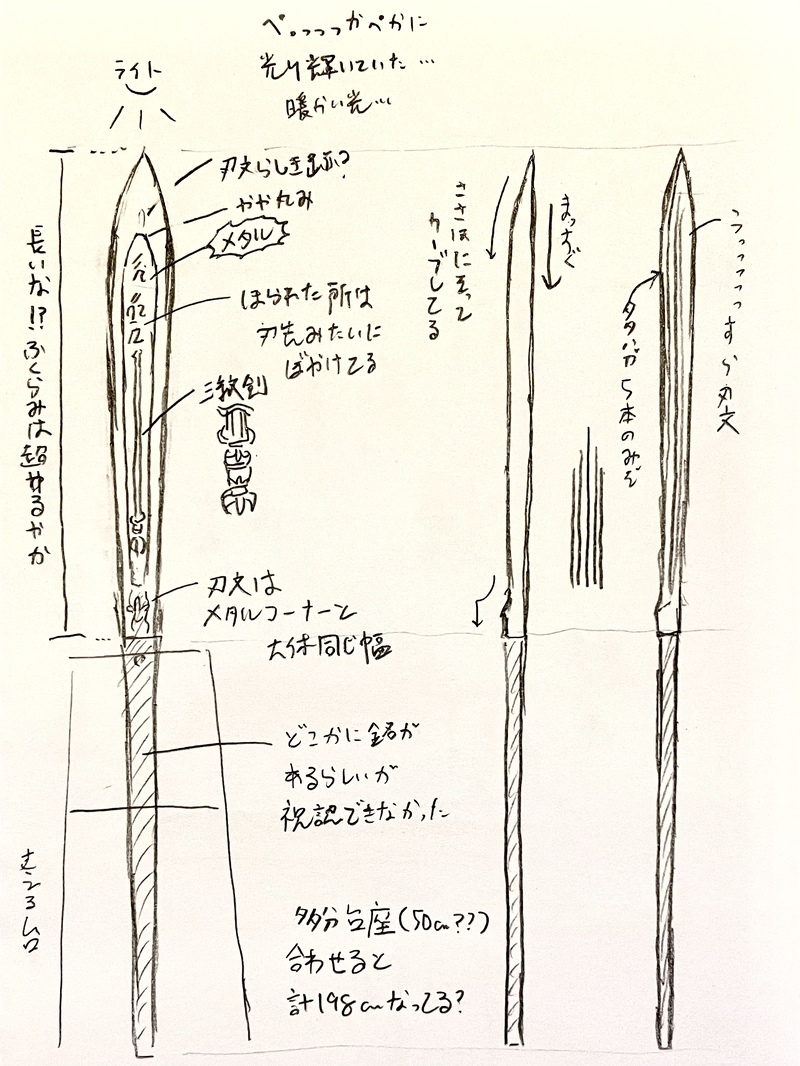 ぺっっっかぺかに
光り輝いていた…
暖かい光…
ライト
刃文らしき跡?
やや丸み
メタル
ほられた所は
刃先みたいに
ぼかけてる
三鈷剣
長いな!?ふくらみは超せるやか
刃文は
メタルコーナーと
大体同じ幅
どこかに銘が
あるらしいが
視認できなかった
多分台座(50cm??)
合わせると
計198cmなってる?
ささほに至って
カーブしてる
まっすぐ
うっっっっすら刃文
多分5本のみぞ